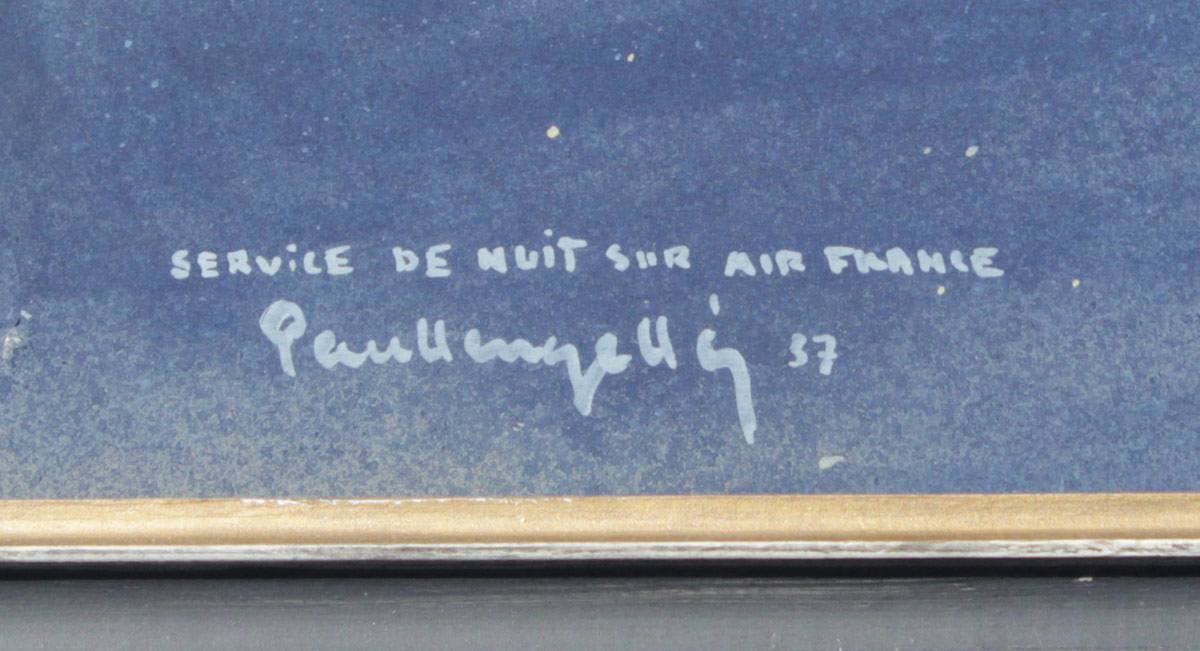 SERVICE DE NUIT SUR AIR FRANCE
Paul Lengellé 37